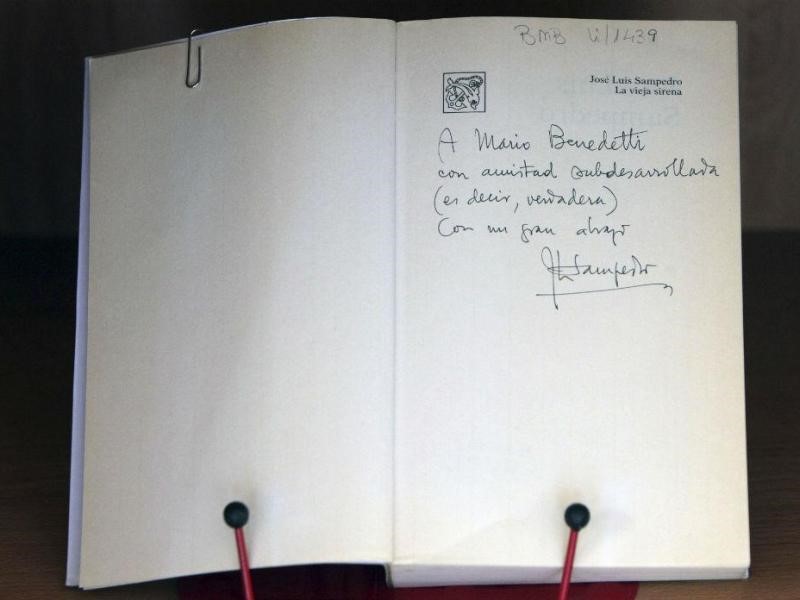 BMB Li/1439
José Luis Sampedro
La vieja sirena
A Mario Benedetti
con amistad subdesarrollada
(es decir, verdadera)
Con un gran abrazo
JLSampedro